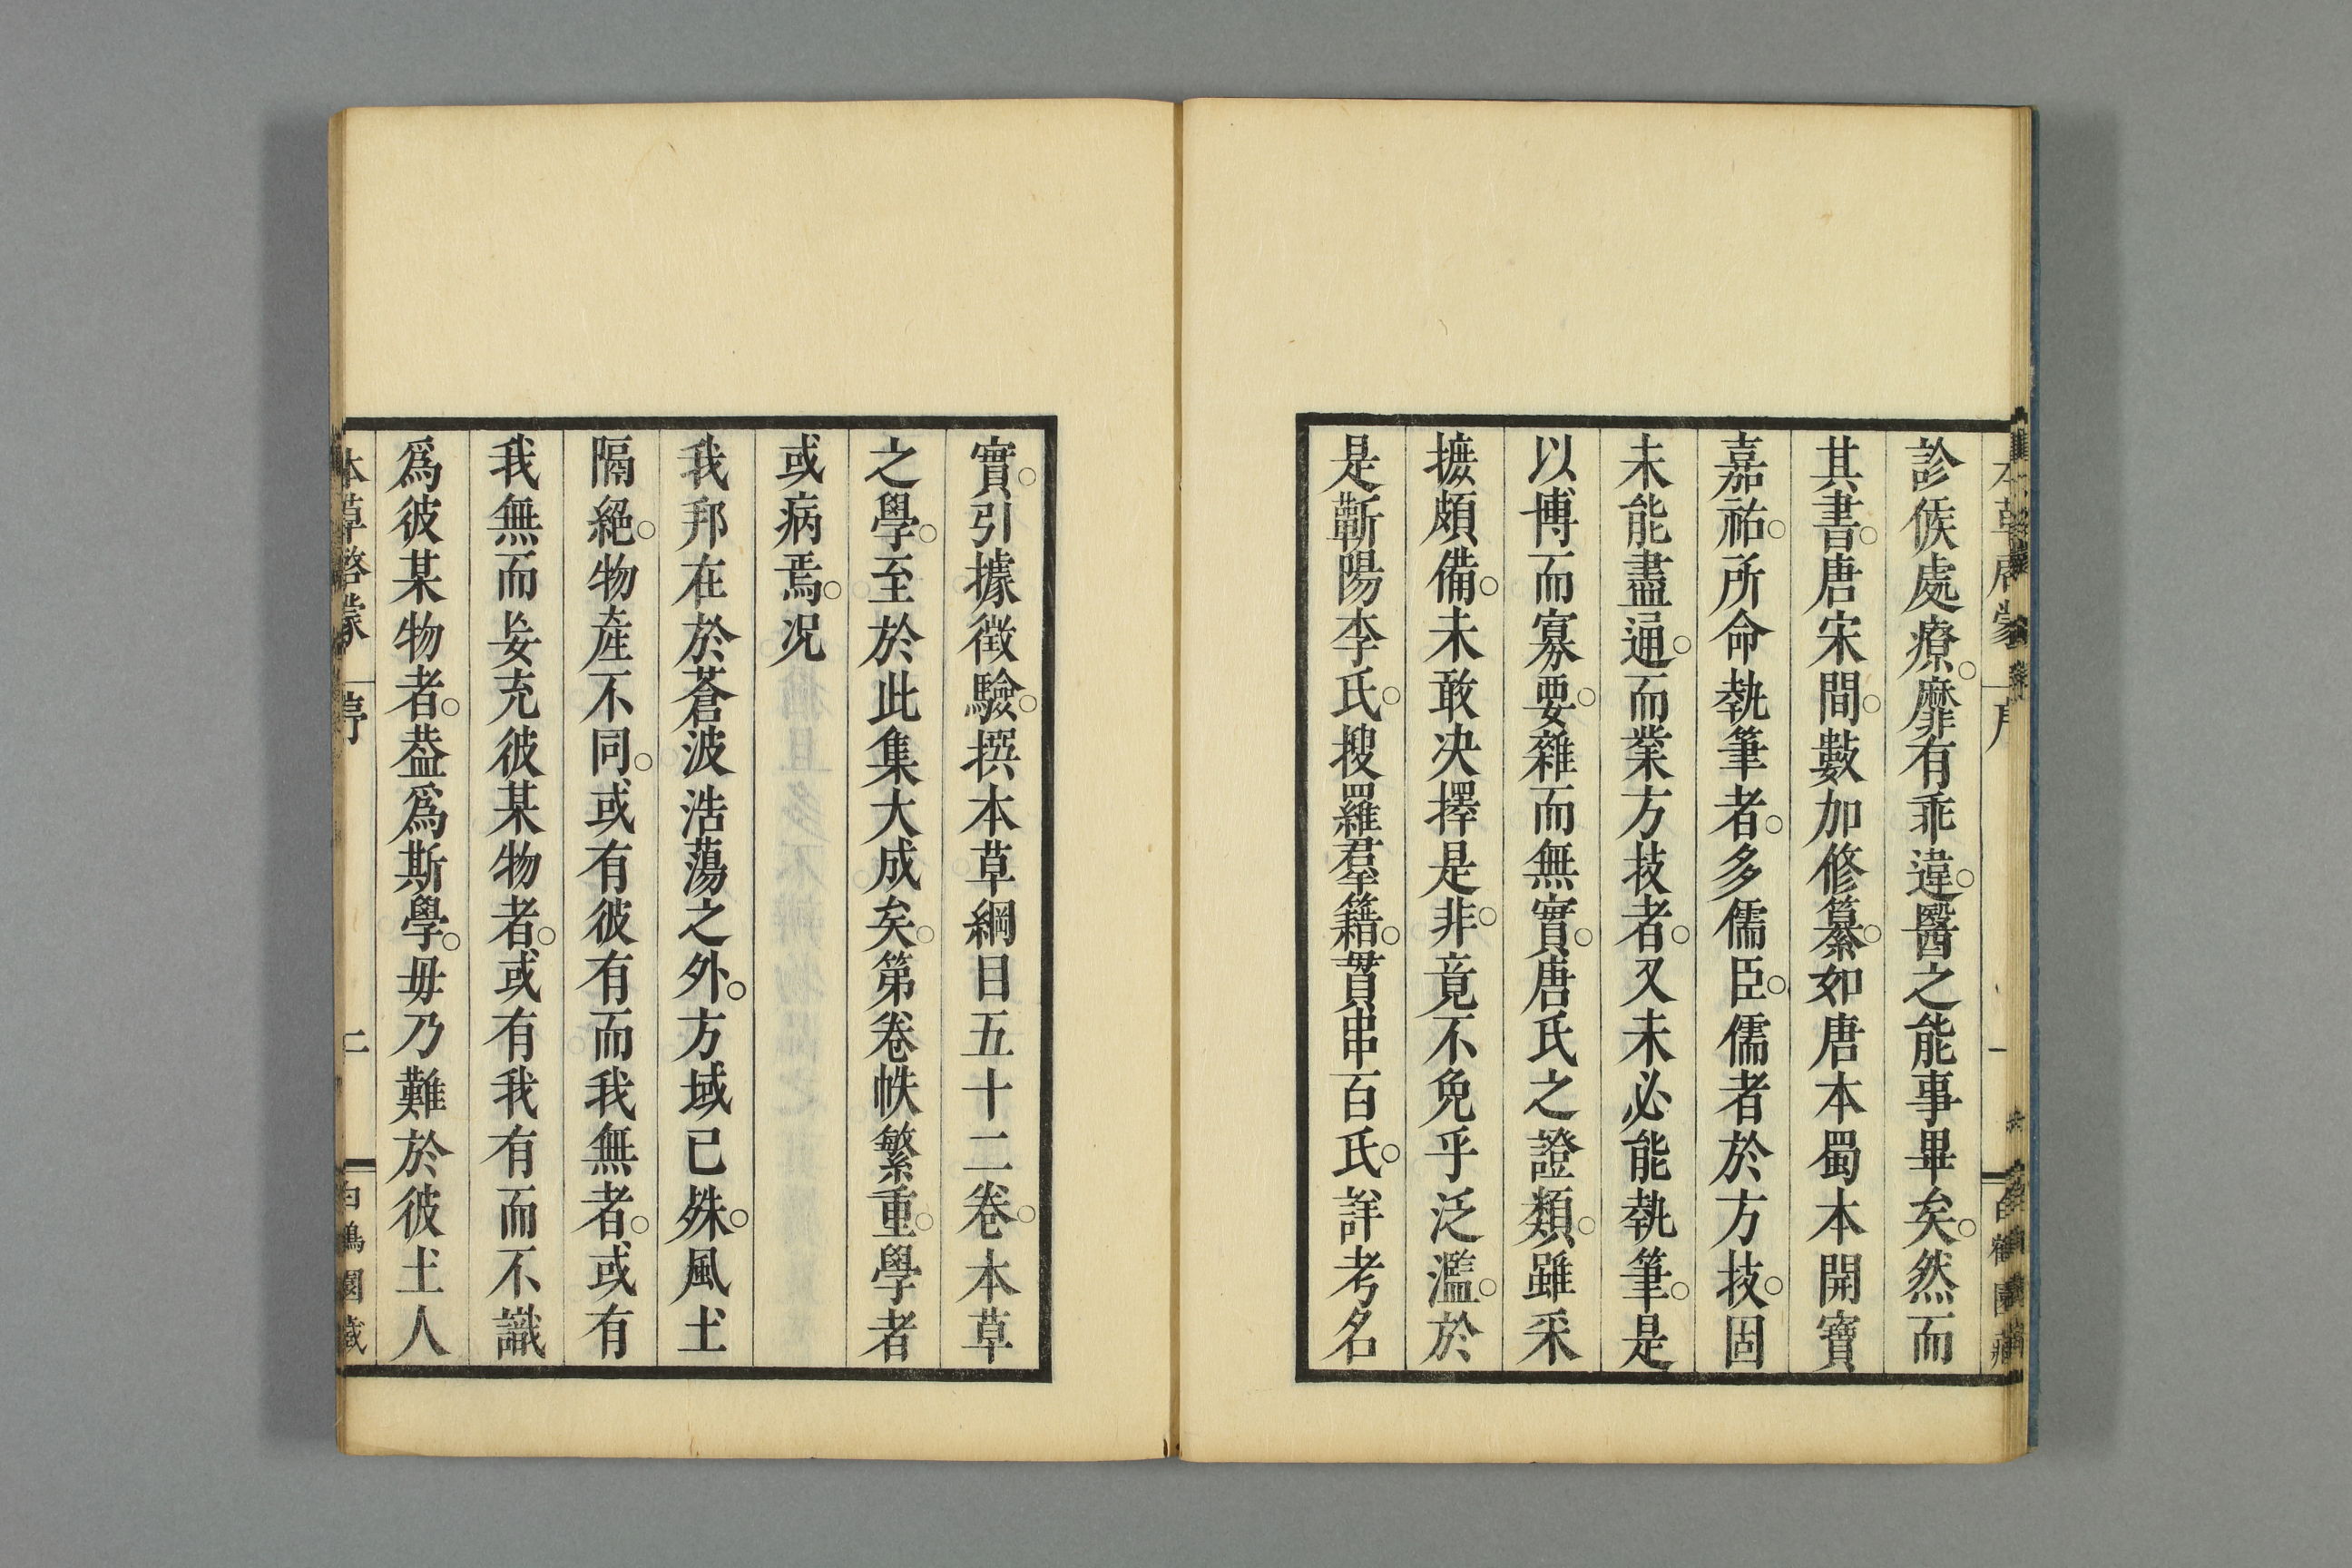 診候處療。靡有乖違。醫之能事畢矣。然而
其書。唐宋間。數加修纂。如唐本蜀本開寶
嘉祐。所命執筆者。多儒臣。儒者於方技。固
未能盡通。而業方技者。又未必能執筆。是
以博而寡要。雜而無實。唐氏之證類。雖采
摭頗備。未敢决擇是非。竟不免乎泛濫。於
是蘄陽李氏。搜羅羣籍。貫串百氏。詳考名
實。引據徵驗。撰本草綱目五十二卷。本草
之學。至於此集大成矣。第卷帙繁重。學者
或病焉。况
我邦在於蒼波浩蕩之外。方域已殊。風土
隔絕。物產不同。或有彼有而我無者。或有
我無而妄充彼某物者。或有我有而不識
爲彼某物者。葢爲斯學。毋乃難於彼土人
本草啓蒙 序 二 白鶴園藏